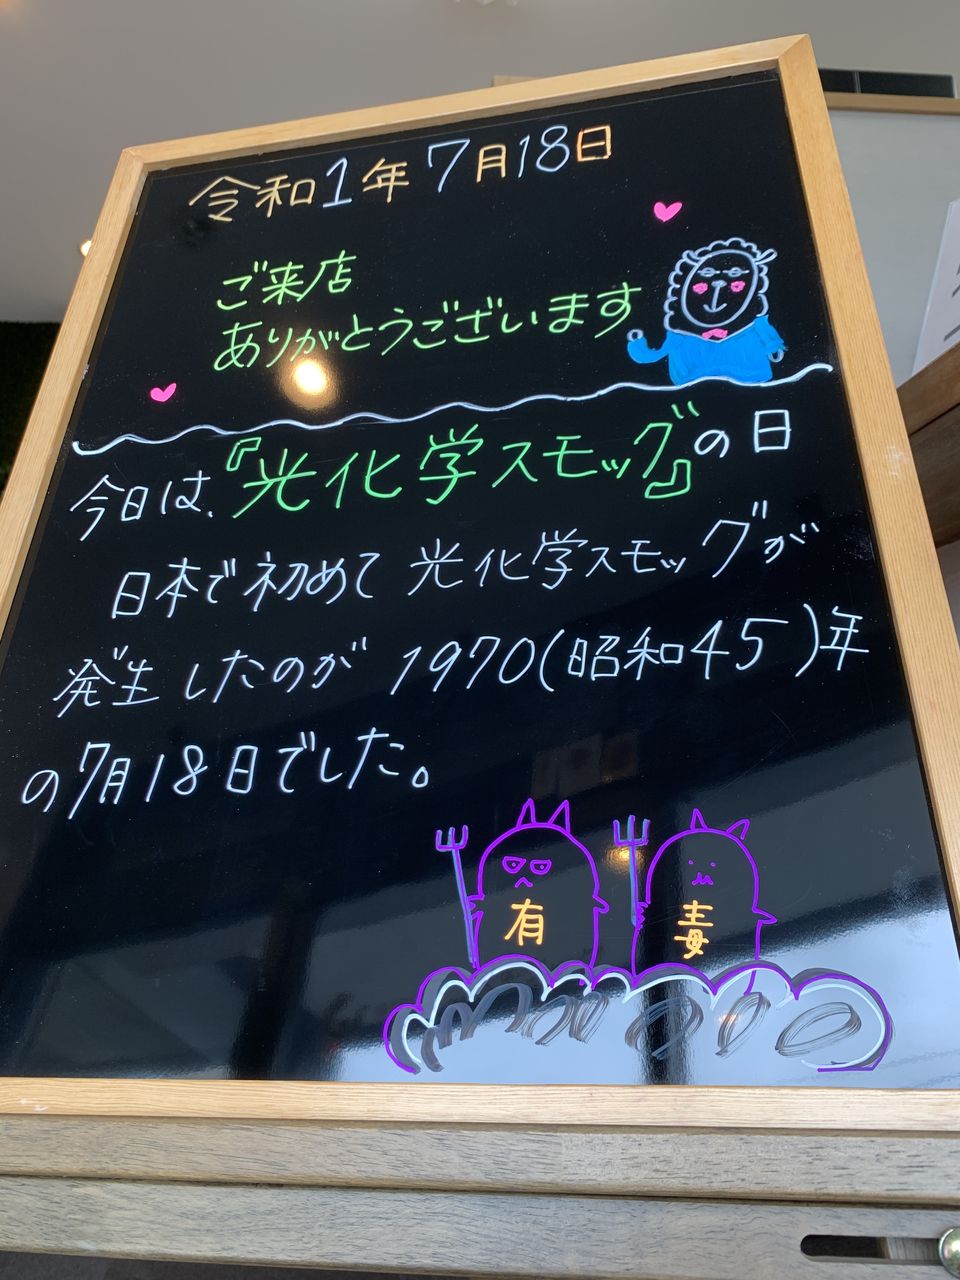 令和1年7月18日
ご来店
ありがとうございます
今日は、『光化学スモッグ』の日
日本で初めて光化学スモッグが
発生したのが1970(昭和45)年
の7月18日でした。
有 毒